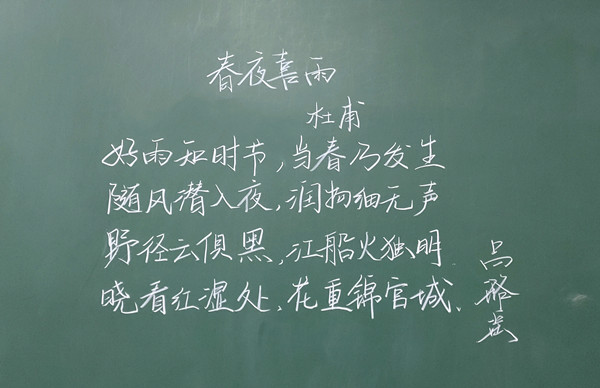 春夜喜雨
杜甫
好雨知时节,当春乃发生
随风潜入夜,润物细无声
野径云俱黑,江船火独明
晓看红湿处,花重锦官城.